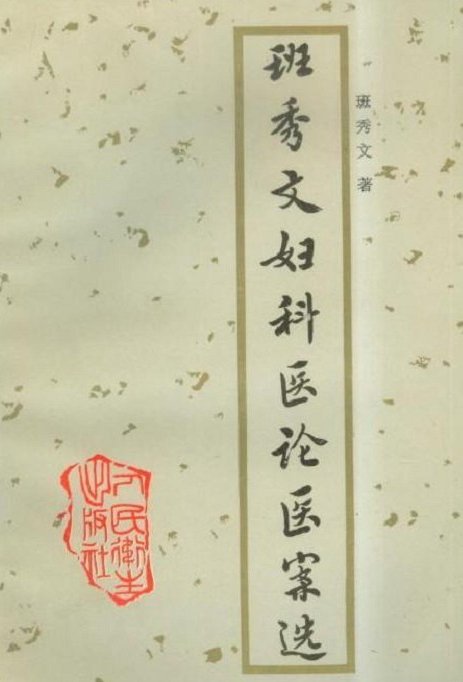 班秀文著
班秀文妇科医论医案选
人民卫生
出版社